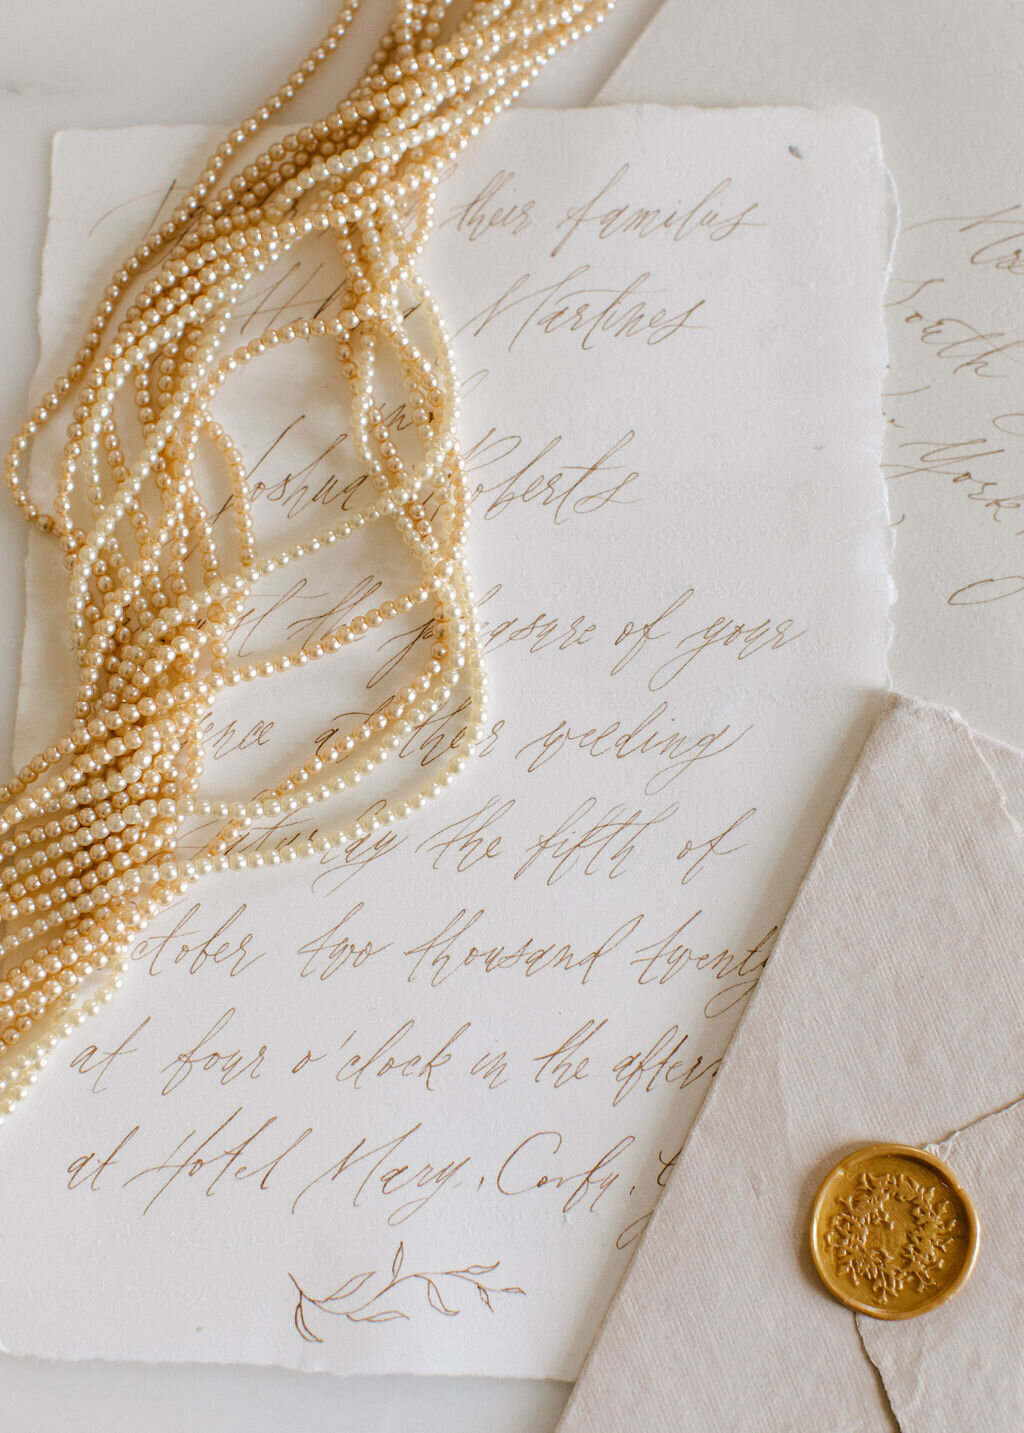 their families
Martines
Joshua Roberts
the pleasure of your
at their weeding
Saturday the fifth of
october two thousand twenty
at four o'clock in the
at Hotel Mary, Corfu,
South
York,